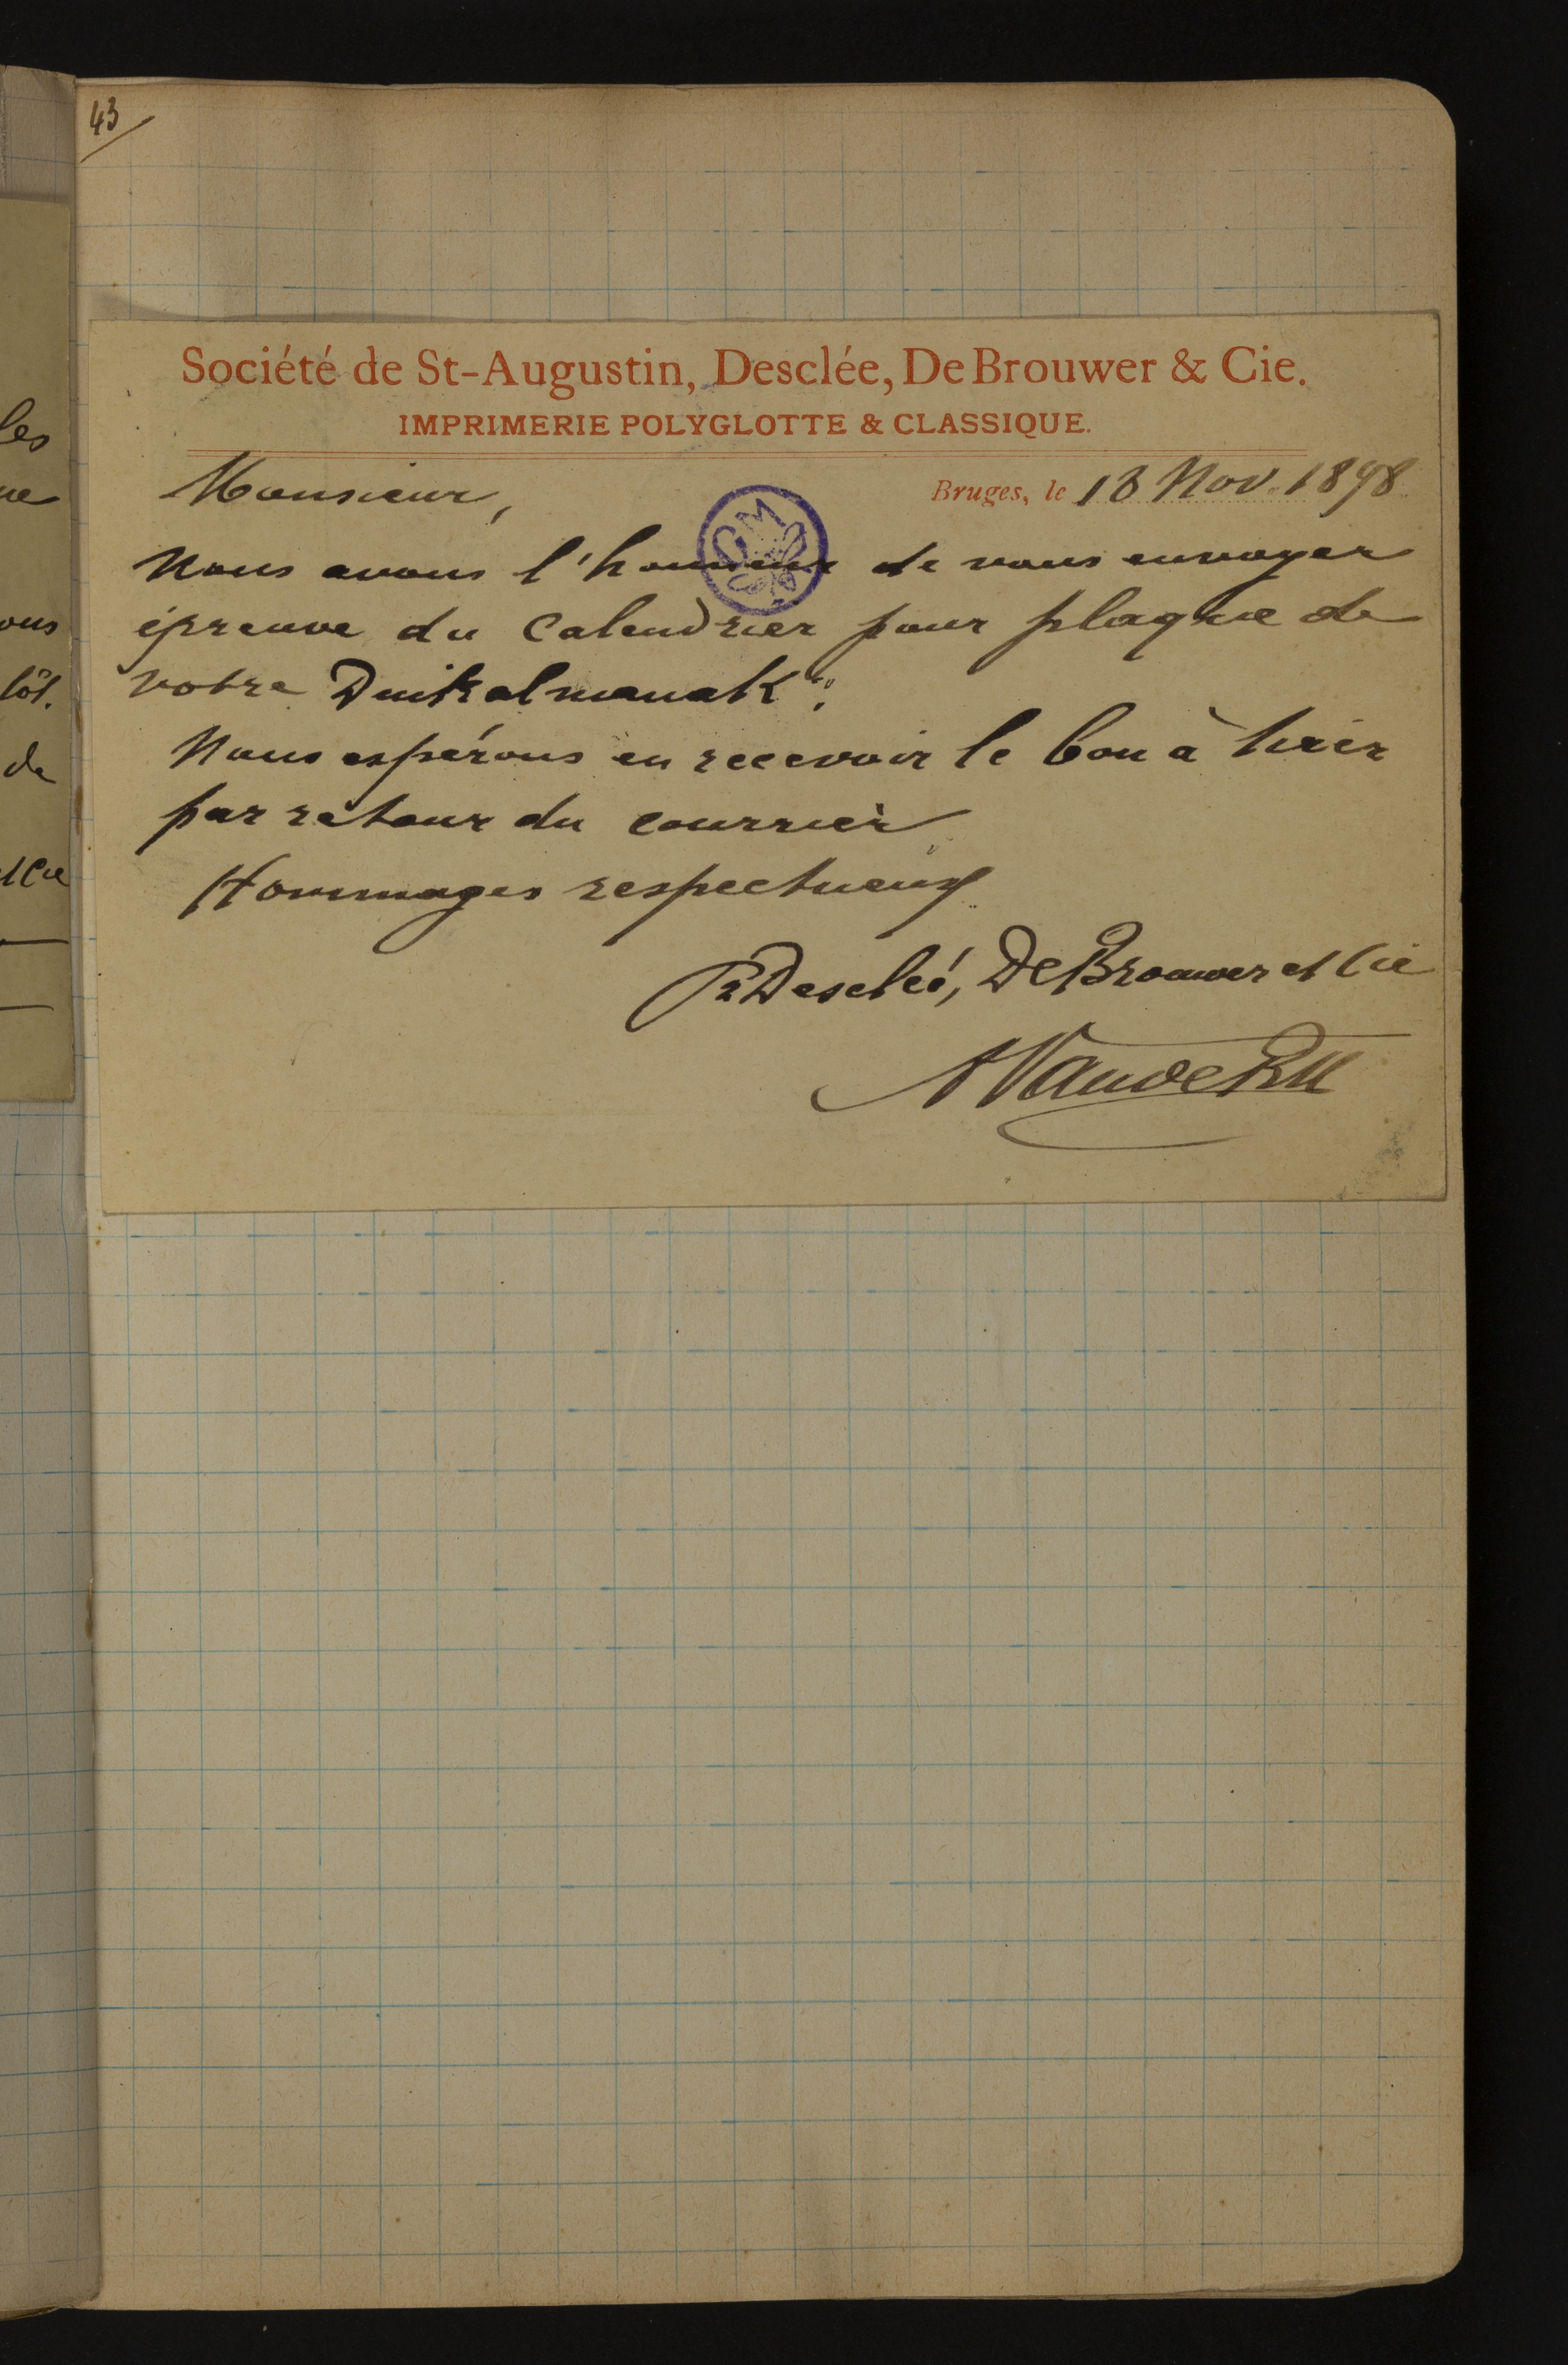 43
Société de St-Augustin, Desclée, De Brouwer & Cie.
IMPRIMERIE POLYGLOTTE & CLASSIQUE.
Bruges, le 18 Nov. 1898
Monsieur,
Nous avons l'honneur de vous envoyer
épreuve du Calendrier pour plaque de
votre Duikalmanak".
Nous espérons en recevoir le bon à tirer
par retour du courrier
Hommages respectueux
Pr Desclée, De Brouwer et Cie
les
ous
tôt.
de
et Cie